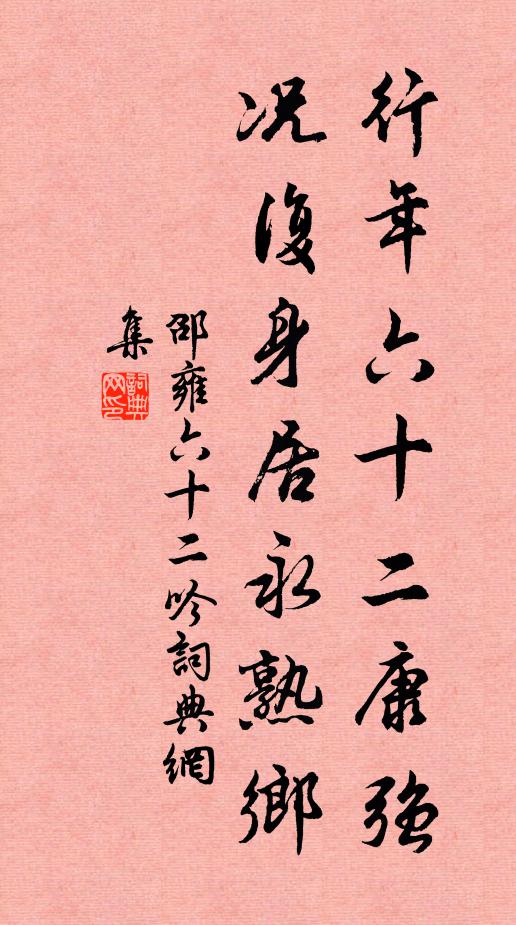 行年六十二康強
況復身居永熟鄉
邵雍六十二吟詞典網
集
詞典
网印